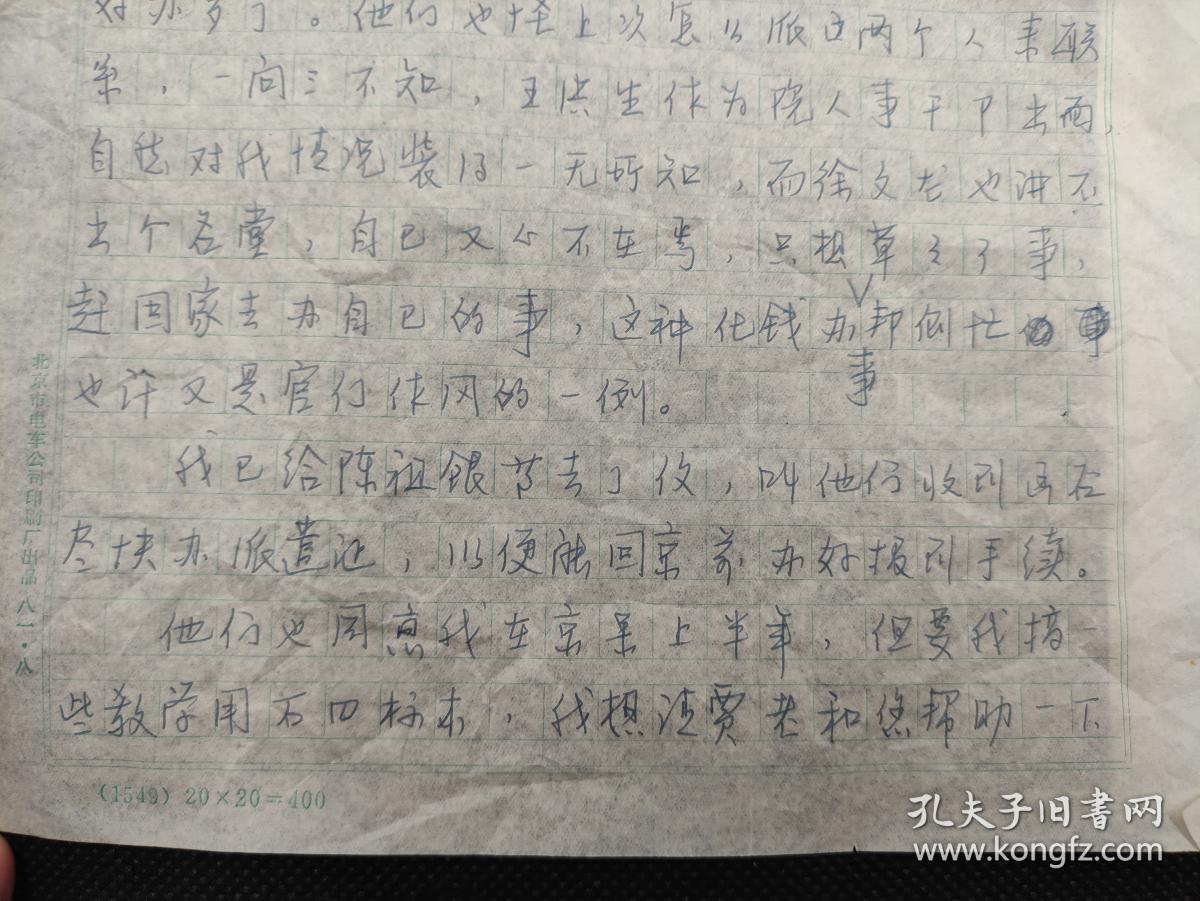 好办多了。他们也怪上次怎么派这两个人来联
系，一问三不知，王洪生作为院人事干卩出面，
自然对我情况装得一无所知，而徐文龙也讲不
出个名堂，自己又心不在焉，只想草々了事，
赶回家去办自己的事，这种化钱办邦倒忙的事
事
也许又是官行作风的一例。
我已给陈祖银芳去了伩，叫他们收到函后
尽快办派遣证，以便能回京前办好报到手续。
他们也同意我在京呆上半年，但要我搞一
些教学用石口标本，我想请贾老和您帮助一下
北京市电车公司印刷厂出品 八一·八
(1549) 20×20=400
孔夫子旧书网
www.kongfz.com